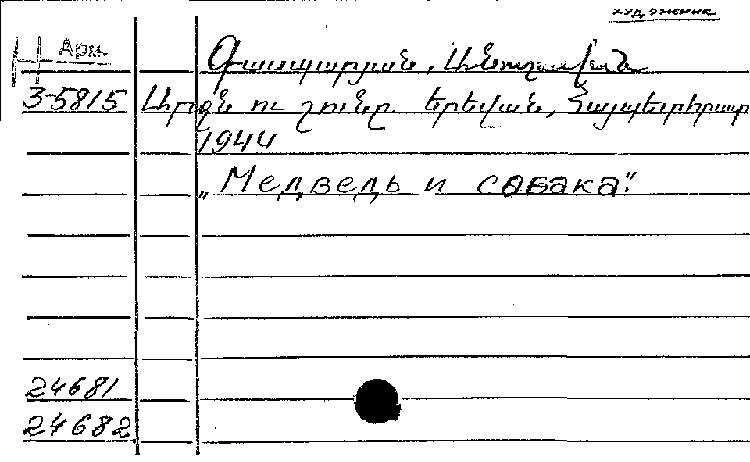 художник
Арм. Գասպարյան, Անուշավան
3-5815 Արջն ու շունը. Երեվան, Հայպետհրատ
1944
„Медведь и собака".
24681
24682